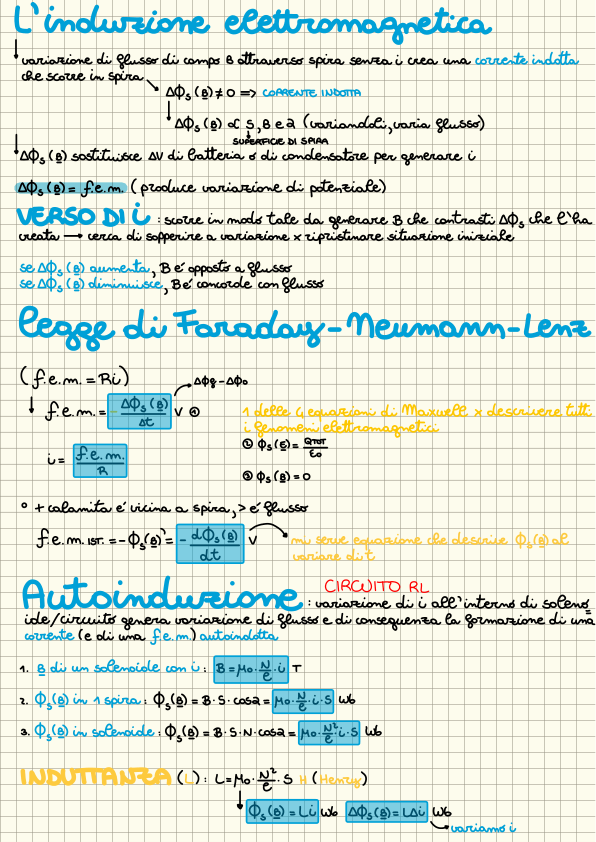 L'induzione elettromagnetica
variazione di flusso di campo B attraverso spira senza i crea una corrente indotta
che scorre in spira
ΔΦs(B) ≠ 0 => CORRENTE INDOTTA
ΔΦs(B) ∝ S, B e α (variandoli, varia flusso)
SUPERFICIE DI SPIRA
ΔΦs(B) sostituisce ΔV di batteria o di condensatore per generare i
ΔΦs(B) = f.e.m. (produce variazione di potenziale)
VERSO DI i : scorre in modo tale da generare B che contrasti ΔΦs che l'ha
creata → cerca di sopperire a variazione x ripristinare situazione iniziale
se ΔΦs(B) aumenta, B é opposto a flusso
se ΔΦs(B) diminuisce, B é concorde con flusso
legge di Faraday-Neumann-Lenz
(f.e.m. = Ri)
ΔΦf - ΔΦo
f.e.m. = - ΔΦs(B)/Δt V ④
1 delle 4 equazioni di Maxwell x descrivere tutti
i fenomeni elettromagnetici
① Φs(E) = QTOT/ε0
i = f.e.m./R
② Φs(B) = 0
° + calamita é vicina a spira, > é flusso
f.e.m. IST. = -Φs(B)' = - dΦs(B)/dt V
mi serve equazione che descrive Φs(B) al
variare di t
CIRCUITO RL
Autoinduzione : variazione di i all'interno di solenο
ide/circuito genera variazione di flusso e di conseguenza la formazione di una
corrente (e di una f.e.m.) autoindotta
1. B di un solenoide con i : B = μ0 · N/ℓ · i T
2. Φs(B) in 1 spira : Φs(B) = B · S · cosα = μ0 · N/ℓ · i · S Wb
3. Φs(B) in solenoide : Φs(B) = B · S · N · cosα = μ0 · N²/ℓ · i · S Wb
INDUTTANZA (L) : L = μ0 · N²/ℓ · S H (Henry)
Φs(B) = Li Wb ΔΦs(B) = LΔi Wb
variamo i